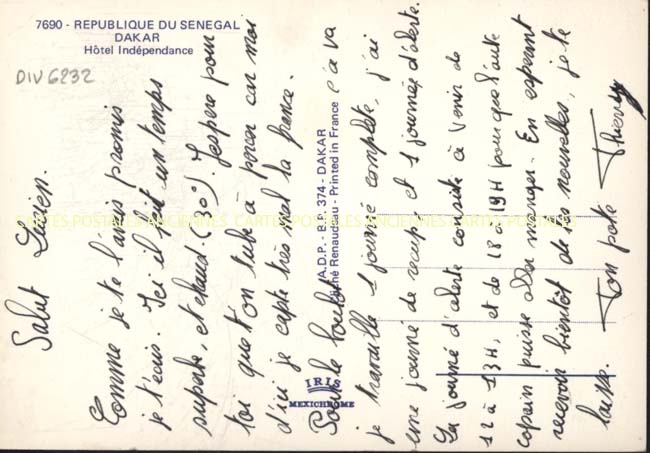 7690 - REPUBLIQUE DU SENEGAL
DAKAR
Hôtel Indépendance
DIV 6232
Salut
Comme je te l'avais promis
je t'écris. Ici il fait un temps
superbe, et chaud (30°). J'espère pour
toi que ton tube à percer car moi
d'ici je capte très mal la france.
Pour le boulot ç'a va
je travaille 1 journée complète, j'ai
une journée de récup et 1 journée d'alerte.
La journée d'alerte consiste à venir de
12 à 13H, et de 18 à 19H pour que l'autre
copain puisse aller manger. En espérant
recevoir bientôt de tes nouvelles, je te
laisse. Ton pote Thierry
I.A.D.P. - B.P. 374 - DAKAR
Cliché Renaudeau - Printed in France
IRIS
MEXICHROME
CARTES POSTALES ANCIENNES CARTES POSTALES ANCIENNES CARTES POSTALES